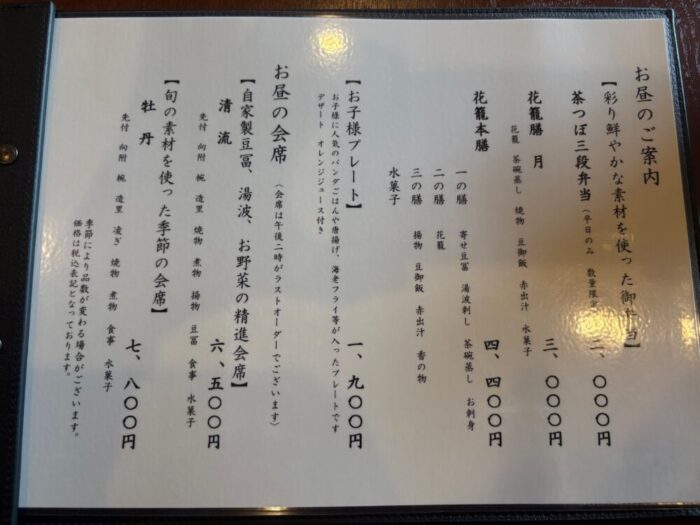 お昼のご案内
【彩り鮮やかな素材を使った御弁当】
茶つぼ三段弁当（平日のみ 数量限定） 二、〇〇〇円
花籠膳 月 三、〇〇〇円
花籠 茶碗蒸し 焼物 豆御飯 赤出汁 水菓子
花籠本膳 四、四〇〇円
一の膳 寄せ豆冨 湯波刺し 茶碗蒸し お刺身
二の膳 花籠
三の膳 揚物 豆御飯 赤出汁 香の物
水菓子
【お子様プレート】 一、九〇〇円
お子様に人気のパンダごはんや唐揚げ、海老フライ等が入ったプレートです
デザート オレンジジュース付き
お昼の会席（会席は午後二時がラストオーダーでございます）
【自家製豆冨、湯波、お野菜の精進会席】
清流 六、五〇〇円
先付 向附 椀 造里 焼物 煮物 揚物 豆冨 食事 水菓子
【旬の素材を使った季節の会席】
牡丹 七、八〇〇円
先付 向附 椀 造里 凌ぎ 焼物 煮物 食事 水菓子
季節により品数が変わる場合がございます。
価格は税込表記となっております。